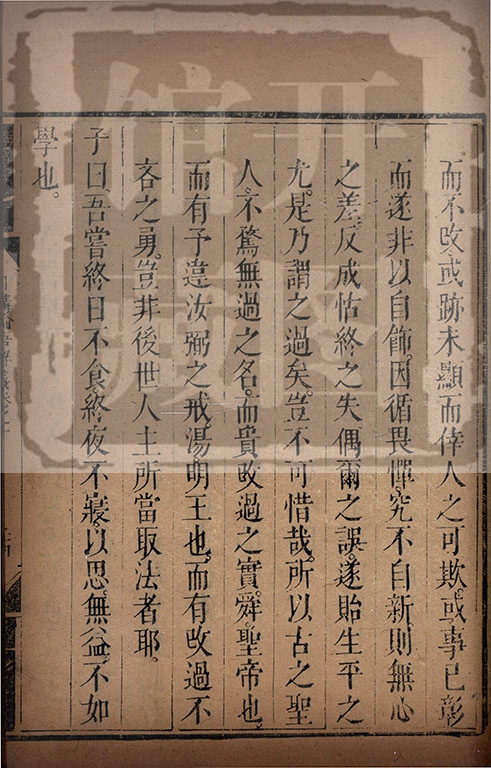 而不改或跡未顯而倖人之可欺或事已彰
而遂非以自飾因循畏憚究不自新則無心
之差反成怙終之失偶爾之誤遂貽生平之
尤是乃謂之過矣豈不可惜哉所以古之聖
人不驚無過之名而貴改過之實舜聖帝也
而有予違汝弼之戒湯明王也而有改過不
吝之勇豈非後世人主所當取法者耶
子曰吾嘗終日不食終夜不寢以思無益不如
學也